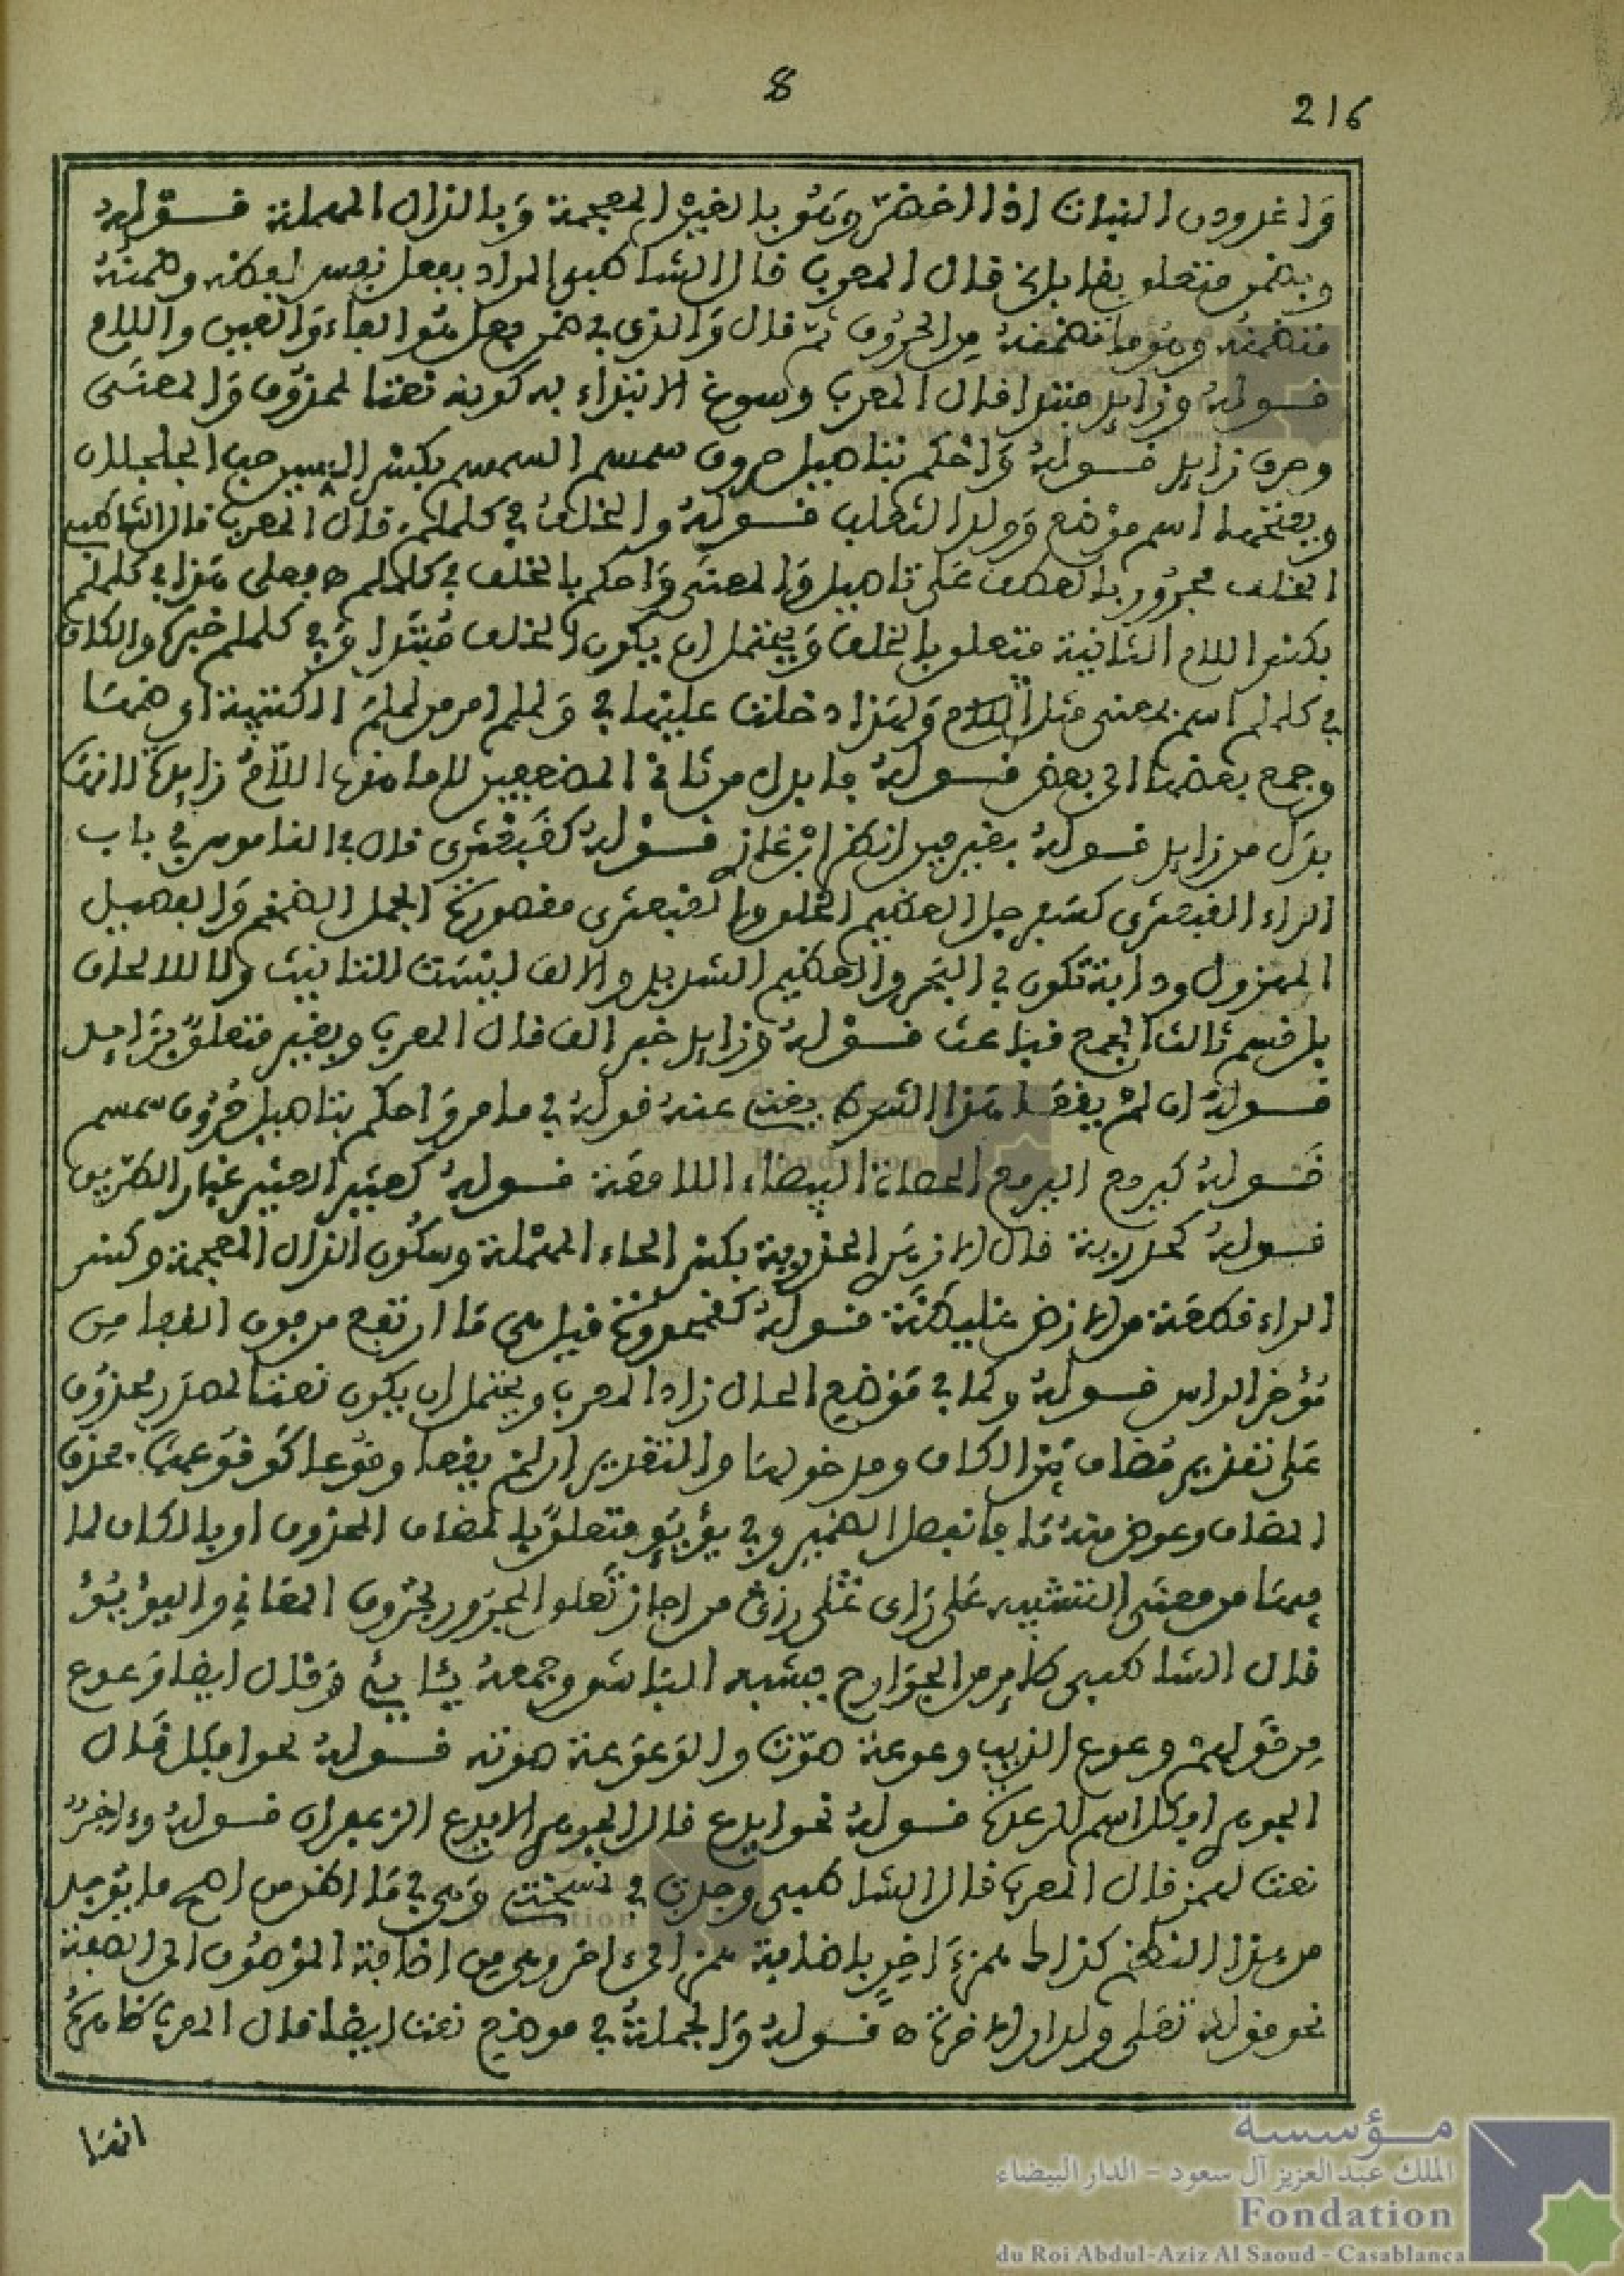 8
216
واغدودن النبات اذا اخضر وهو بالغين المعجمة وبالدال المهملة قوله
وبضمن متعلق بقابل قال المعرب قال الشاطبي المراد بفعل نفس لفظه وضمنه
متضمنه وهو ما تضمنه من الحروف ثم قال والذي في ضمن فعل هو الفاء والعين واللام
قوله وزايد مبتدا قال المعرب وسوغ الابتداء به كونه نعتا لمحذوف والمعنى
وحرف زايد قوله واحكم بتاصيل حروف سمسم السمسم بكسر السين حب الجلجلان
وبفتحهما اسم موضع وولد الثعلب قوله والخلف في كلملم قال المعرب قال الشاطبي
الخلف مجرور بالعطف على تاصيل والمعنى واحكم بالخلف في كلملم ه فعلى هذا في كلملم
بكسر اللام الثانية متعلق بالخلف ويحتمل ان يكون الخلف مبتدا وفي كلملم خبره والكاف
في كلملم اسم بمعنى مثل ولهذا دخلت عليها في ولملم امر من لملم الكتيبة اي ضمها
وجمع بعضها الى بعض قوله فابدل من ثاني المضعفين لاما منها اللام زايدة لانها
بدل من زايد قوله بغير مين انظر قوله كقبعثرى قال في القاموس في باب
الراء القبعثر كسفرجل العظيم الخلق والقبعثرى مقصورة الجمل الضخم والفصيل
المهزول ودابة تكون في البحر والعظيم الشديد والالف ليست للتانيث ولا للالحاق
بل قسم ثالث الجمع قباعث قوله وزايد خبر الف قال المعرب وبغير متعلق بزايد
قوله ان لم يقعا هذا الشرط يغني عنه قوله في ما مر واحكم بتاصيل حروف سمسم
قوله كيرمع اليرمع الحصاة البيضاء اللامعة قوله كعثير العثير غبار الطريق
قوله كحذرية قال الازهري الحذرية بكسر الحاء المهملة وسكون الذال المعجمة وكسر
الراء قطعة من الارض غليظة قوله كقمحدوة قيل هي ما ارتفع من فوق القفا من
مؤخر الراس قوله وكما في موضع الحال زاد المعرب ويحتمل ان يكون نعتا لمصدر محذوف
على تقدير مضاف بين الكاف ومدخولها والتقدير ان لم يقعا وقوعا كوقوعهما فحذف
المضاف وعوض منه ما فانفصل الضمير وفي يؤيؤ متعلق بالمضاف المحذوف او بالكاف لما
فيها من معنى التشبيه على راى من اجاز تعلق المجرور بحروف المعاني واليؤيؤ
قال الشاطبي طاير من الجوارح يشبه الباشق وجمعه يئايئ وقال ايضا وعوع
من قولهم وعوع الذيب وعوعة صوت والوعوعة صوته قوله نحو افكل قال
الجوهري افكل اسم للرعدة قوله نحو ايدع قال الجوهري الايدع الزعفران قوله وءاخر
نعت لهمز قال المعرب قال الشاطبي وجدت في نسختي وهي في ما اظن من اصح ما يوجد
من هذا النظم كذا همزء اخر باضافة همز الى ءاخر وهي من اضافة الموصوف الى الصفة
نحو قوله تعلى ولدار الاخرة ه قوله والجملة في موضع نعت ايضا قال المعرب ظاهره
انها
مؤسسة
الملك عبد العزيز آل سعود - الدار البيضاء
Fondation
du Roi Abdul-Aziz Al Saoud - Casablanca